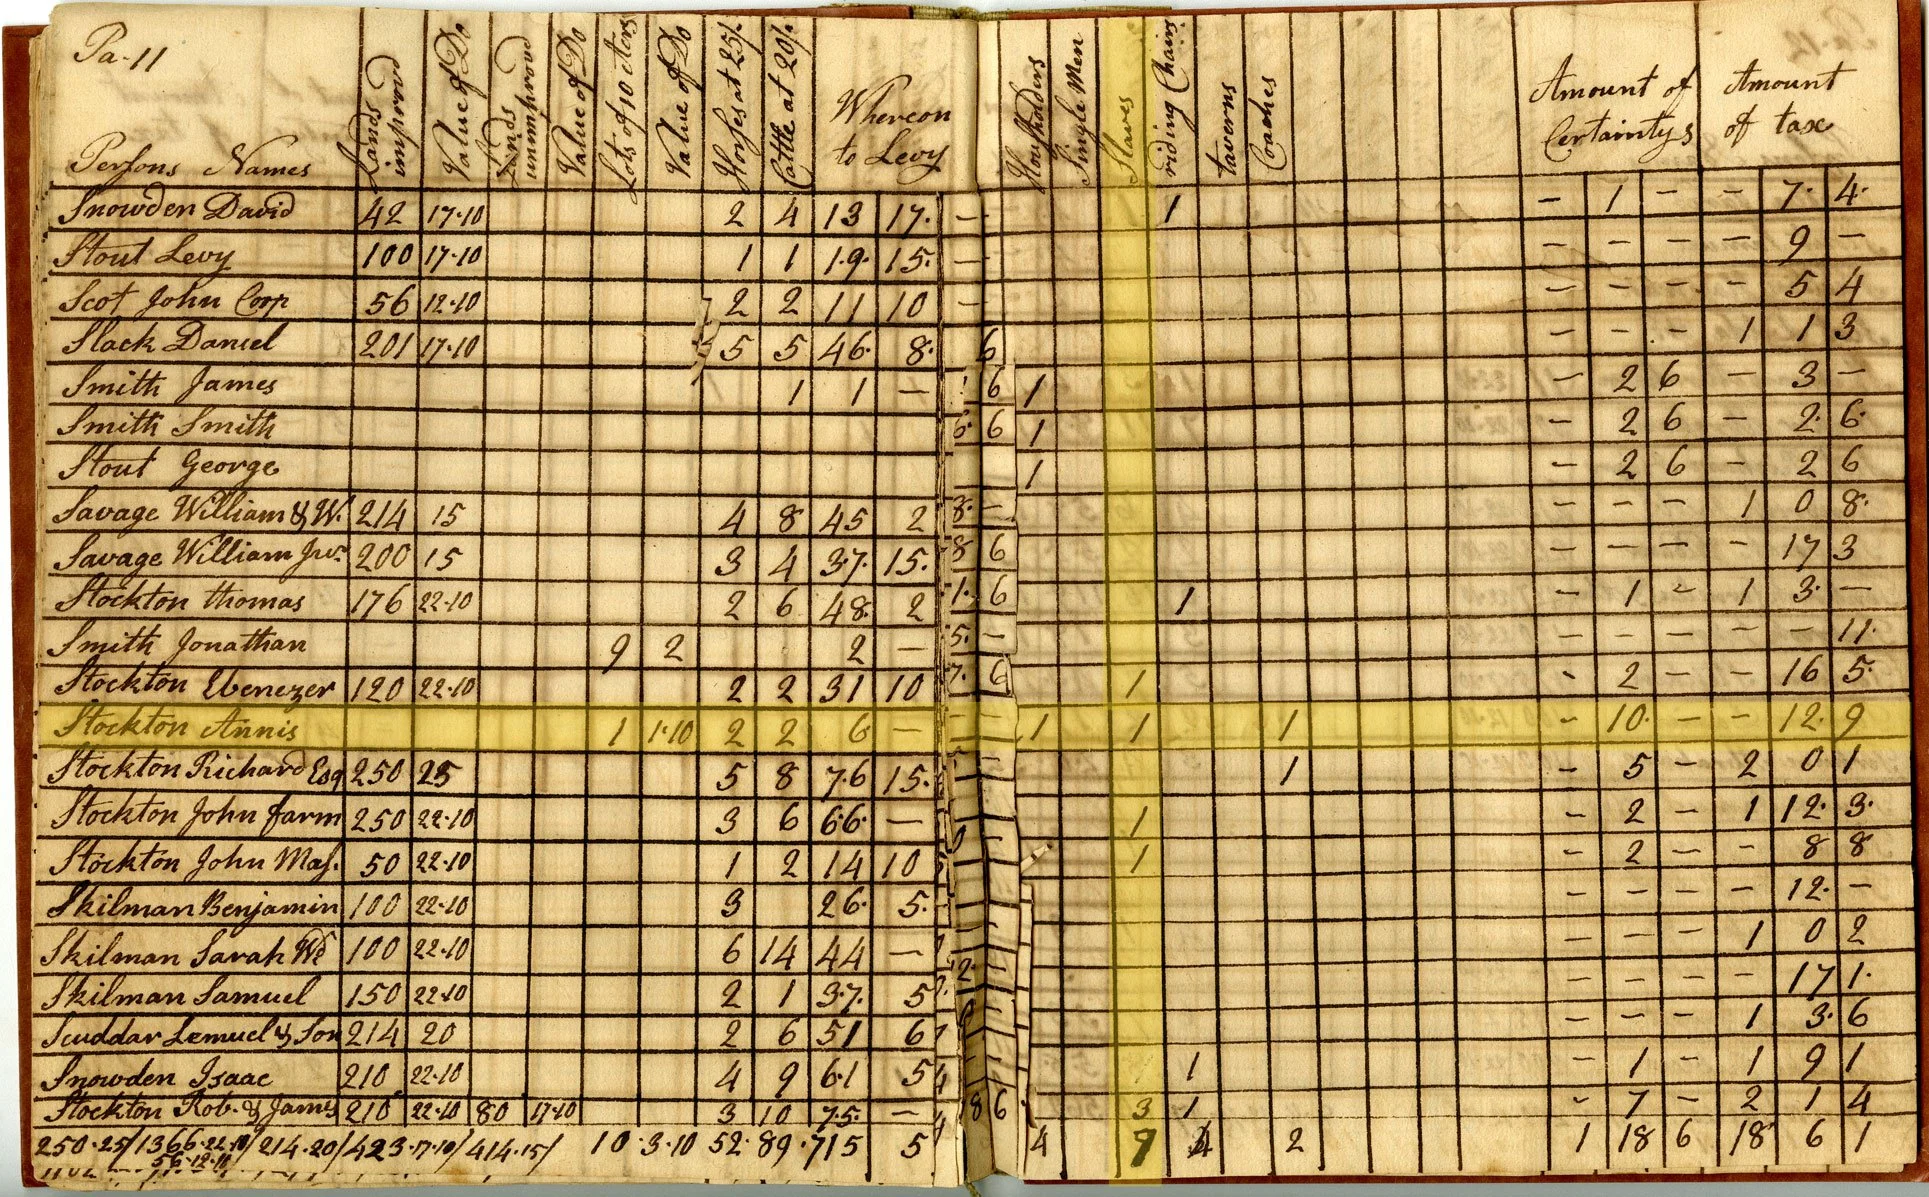 Pa-11
Persons Names
Lands improvd
Value of Do
Lands unimprovd
Value of Do
Lots of 10 Acrs
Value of Do
Horses at 25/
Cattle at 20/
Whereon to Levy
Housholders
Single Men
Slaves
riding Chairs
taverns
Coaches
Amount of Certaintys
Amount of tax
Snowden David 42 17·10 2 4 13 17· — 1 - 1 - - 7· 4·
Stout Levy 100 17·10 1 1 19· 15· — - - - - 9 -
Scot John Coop 56 12·10 2 2 11 10 — - - - - 5 4
Slack Daniel 201 17·10 5 5 46· 8· 6 - - - 1 1 3
Smith James 1 1 — 6 1 - 2 6 - 3 -
Smith Smith 6· 6 1 - 2 6 - 2· 6·
Stout George 1 - 2 6 - 2 6
Savage William & W. 214 15 4 8 45 2 8· - - - - 1 0 8·
Savage William Junr 200 15 3 4 37· 15· 8 6 - - - - 17 3
Stockton thomas 176 22·10 2 6 48· 2 1· 6 1 - 1 - 1 3· -
Smith Jonathan 9 2 2 — 5· - - - - - - 11·
Stockton Ebenezer 120 22·10 2 2 31 10 7· 6 1 - 2 - - 16 5·
Stockton Annis 1 1·10 2 2 6 — - - 1 1 1 - 10· - - 12· 9
Stockton Richard Esq 250 25 5 8 76 15· 1 - 5 - 2 0 1
Stockton John farm 250 22·10 3 6 66· — 1 - 2 - 1 12· 3·
Stockton John Maj. 50 22·10 1 2 14 10 1 - 2 - - 8 8
Skilman Benjamin 100 22·10 3 26· 5· - - - - 12· -
Skilman Sarah Wd 100 22·10 6 14 44 — - - - 1 0 2
Skilman Samuel 150 22·10 2 1 37· 5 2· - - - - 17 1·
Scuddar Lemuel & Son 214 20 2 6 51 6 - - - 1 3· 6
Snowden Isaac 210 22·10 4 9 61 5 1 - 1 - 1 9 1
Stockton Rob. & James 210 22·10 80 17·10 3 10 75· — 8 6 3 1 - 7 - 2 1 4
250·25/1366·22·10/214·20/423·17·10/414·15/ 10·3·10 52·89·715 5 4 7 4 2 1 18 6 18 6 1
56·12·10